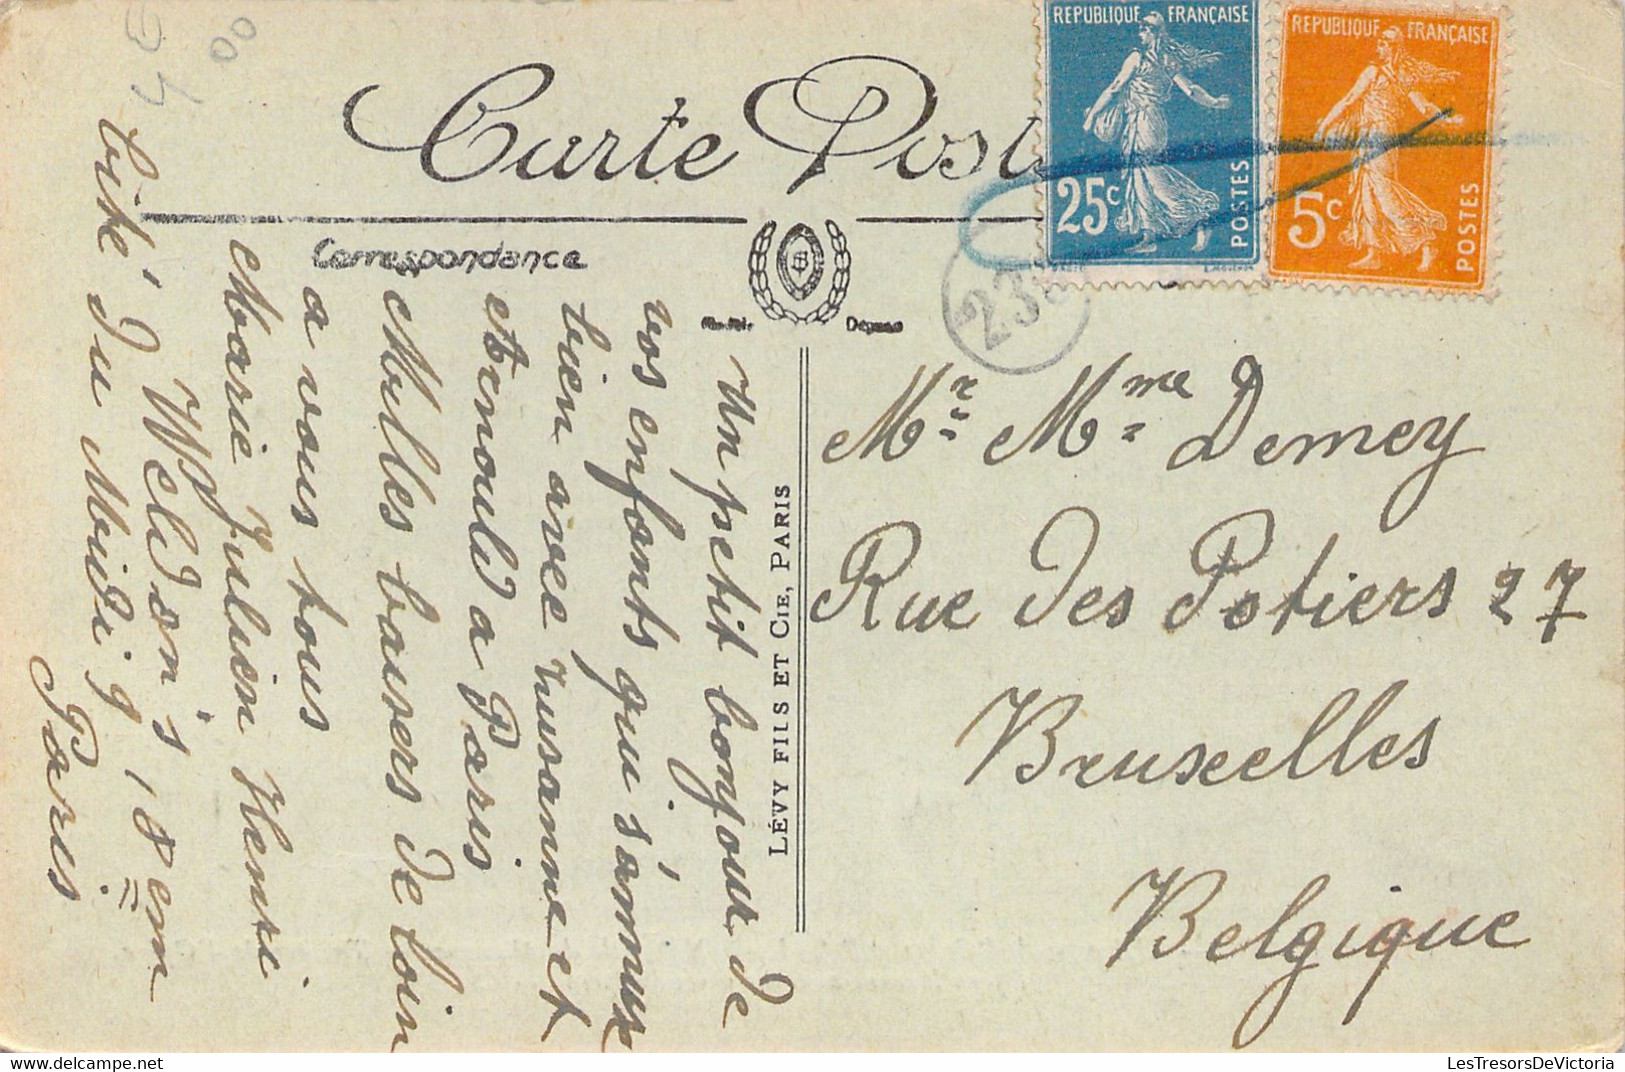 €
4 00
Carte Post
REPUBLIQUE FRANÇAISE
25c
POSTES
REPUBLIQUE FRANÇAISE
5c
POSTES
Correspondance
Déposé
LÉVY FILS ET CIE, PARIS
Un petit bonjour de
vos enfants qui s'ammuse
bien avec nusanne et
Arnould a Paris
Milles baisers de loin
a vous tous
Marie Julien Henri
Weldon's, 18em
Cité du Midi 9
Paris
Mr Mme Demey
Rue des Potiers 27
Bruxelles
Belgique
LesTresorsDeVictoria